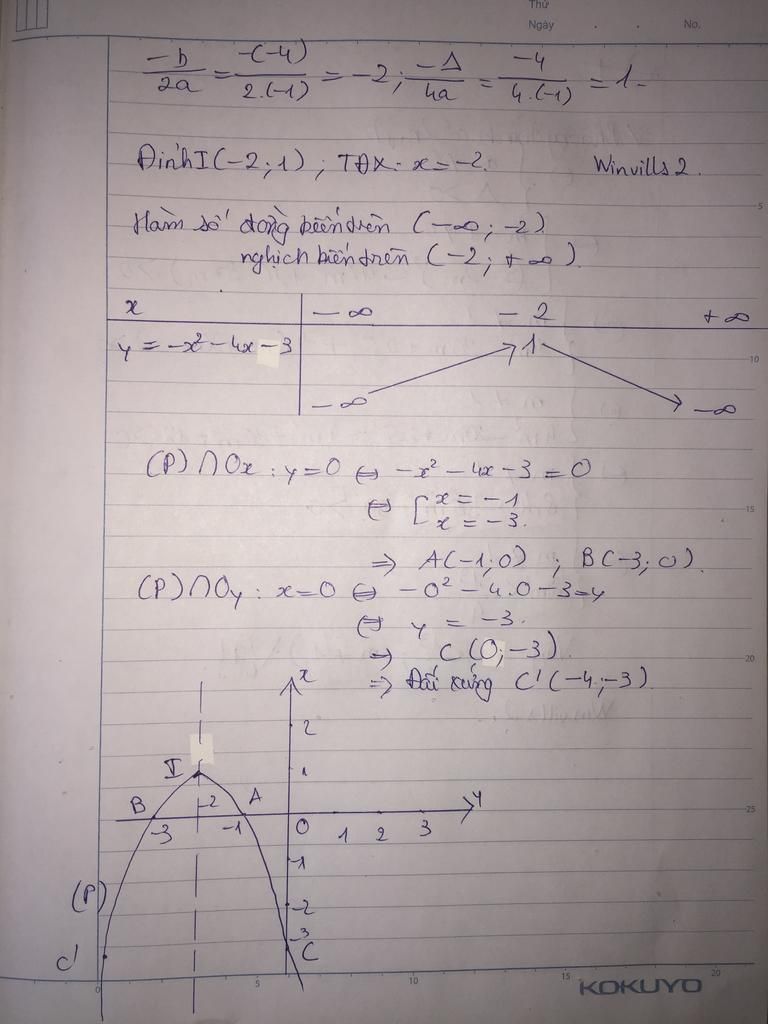 Thứ
Ngày . . No.
-b/2a = -(-4)/2.(-1) = -2; -Δ/4a = -4/4.(-1) = 1.
Đỉnh I(-2;1); TĐX: x = -2. Winvills2.
Hàm số đồng biến trên (-∞; -2)
nghịch biến trên (-2; +∞).
x -∞ -2 +∞
y = -x² - 4x - 3 1
-∞ -∞
(P) ∩ Ox : y = 0 ⇔ -x² - 4x - 3 = 0
⇔ [ x = -1
x = -3.
⇒ A(-1;0) ; B(-3;0).
(P) ∩ Oy : x = 0 ⇔ -0² - 4.0 - 3 = y
⇔ y = -3.
⇒ C(0;-3).
⇒ Đối xứng C'(-4;-3).
x
2
I 1
B -2 A y
-3 -1 O 1 2 3
-1
(P) -2
-3
C' C
5
10
15
20
25
0 5 10 15 20
KOKUYO